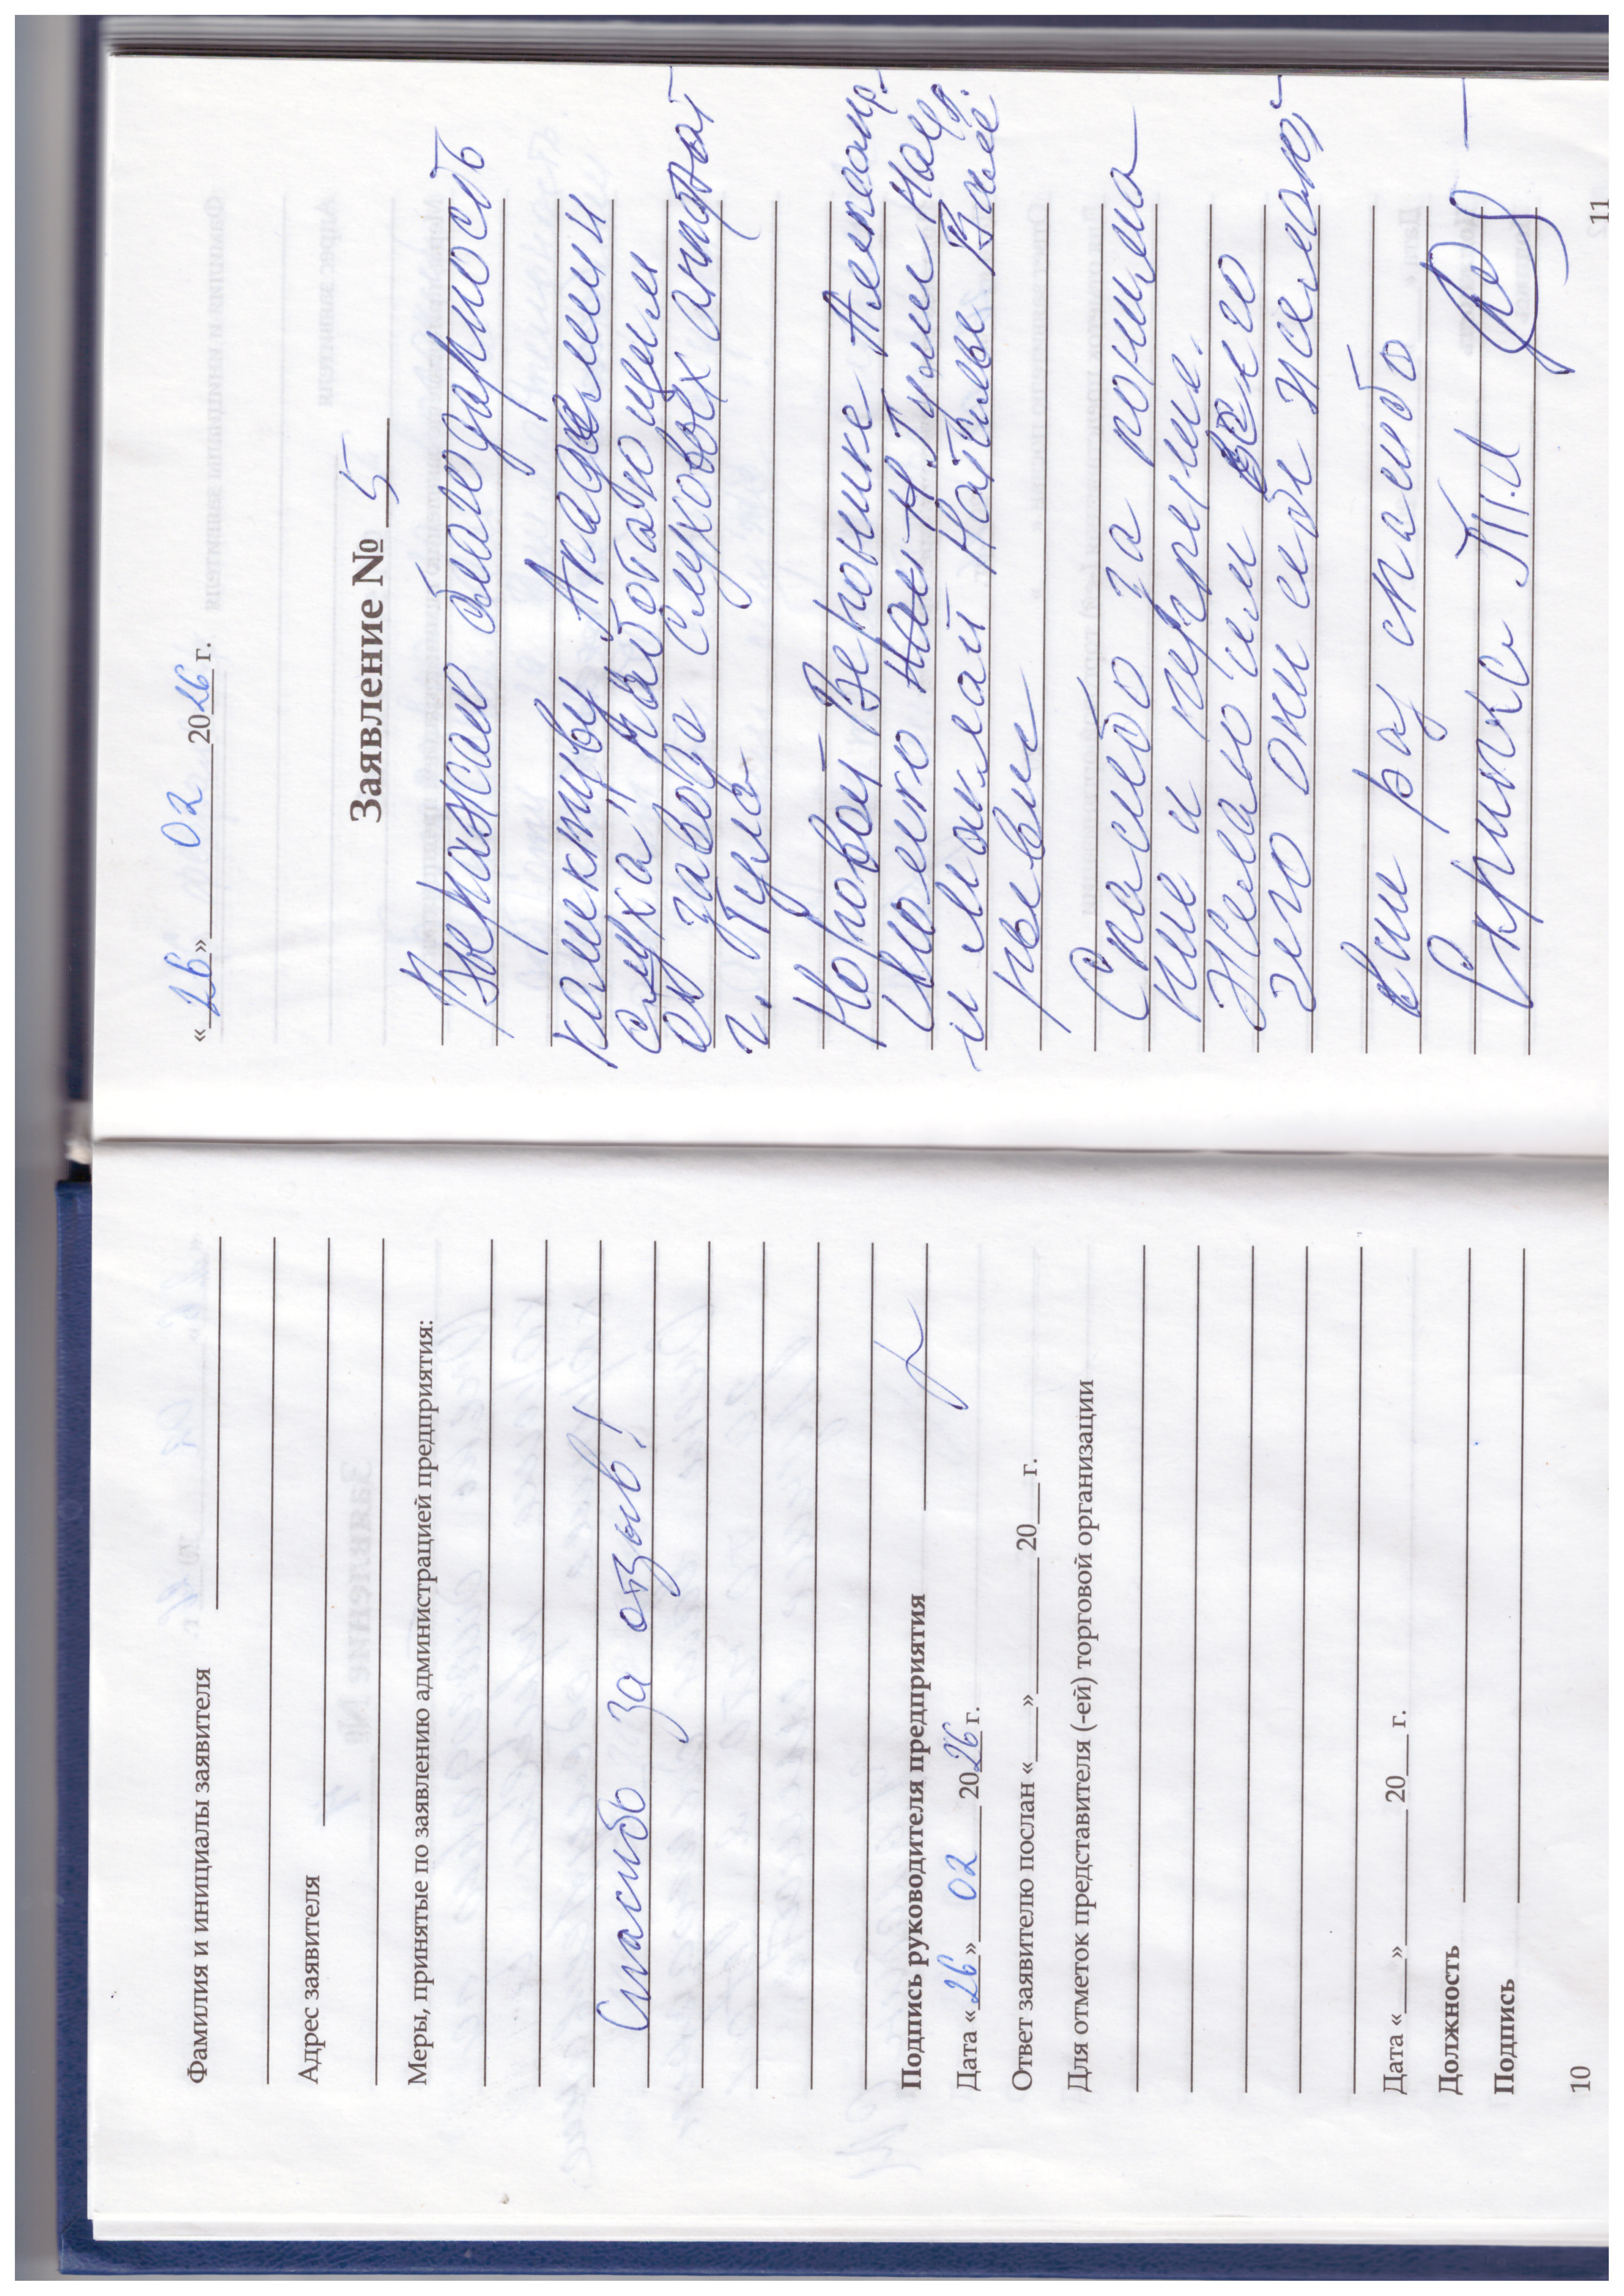 Фамилия и инициалы заявителя
Адрес заявителя
Меры, принятые по заявлению администрацией предприятия:
Спасибо за отзыв!
Подпись руководителя предприятия
Дата «26» 02 2026 г.
Ответ заявителю послан «___» 20___ г.
Для отметок представителя (-ей) торговой организации
Дата «___» 20___ г.
Должность
Подпись
10
«26» 02 2026 г.
Заявление № 5
Выражаю благодарность
коллективу „Академии
слуха" работающим
от завода слуховых аппарат
г. Тула
Вероники
и милой Наталье
Спасибо за
ние и терпение.
Желаю им всего
чего они себе желают
спасибо
Т.И
11